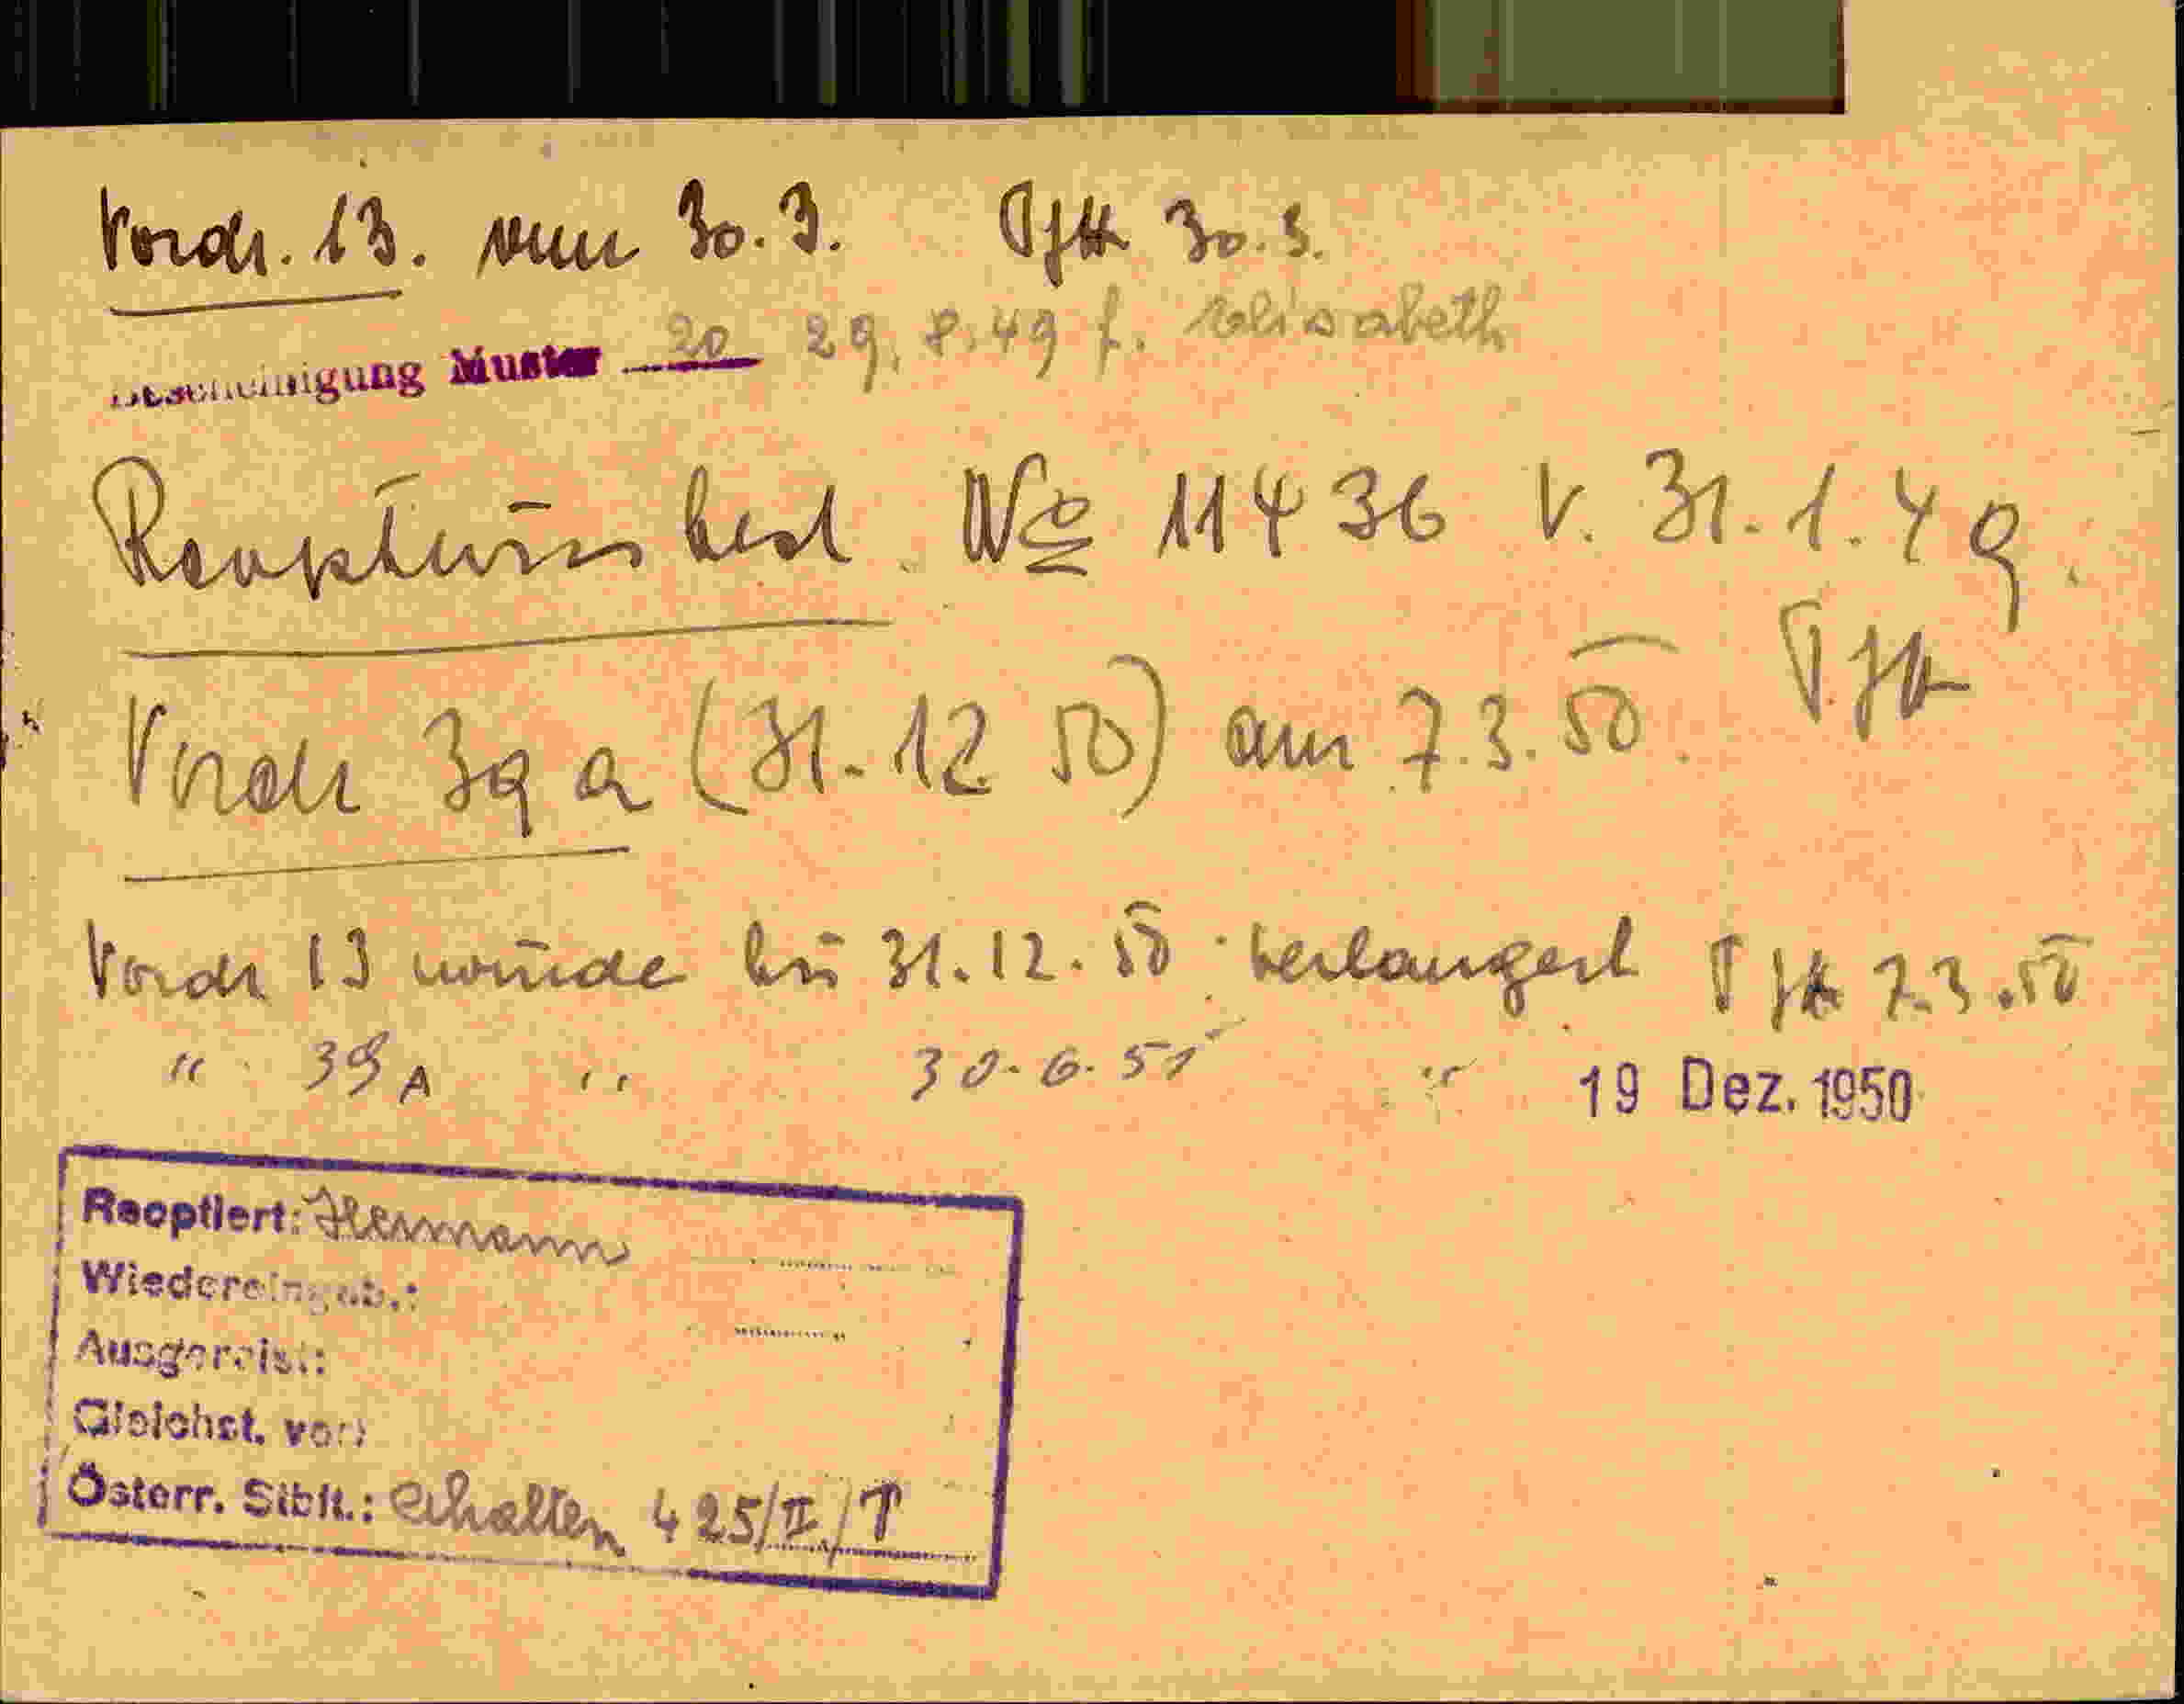 Vordr. 13. vom 30. 3. 30. 3.
Bescheinigung Muster 20 29. 8. 49 f. Elisabeth
Reoptionsbest. No 11436 v. 31. 1. 49.
Vordr 39 a (31. 12 50) am 7. 3. 50.
Vordr 13 wurde bis 31. 12. 50 verlängert 7. 3. 50
" 39 A " 30. 6. 51 " 19 Dez. 1950
Reoptiert: Hermann
Wiedereingeb.:
Ausgereist:
Gleichst. vor:
Österr. Stbft.: erhalten 425/II/T